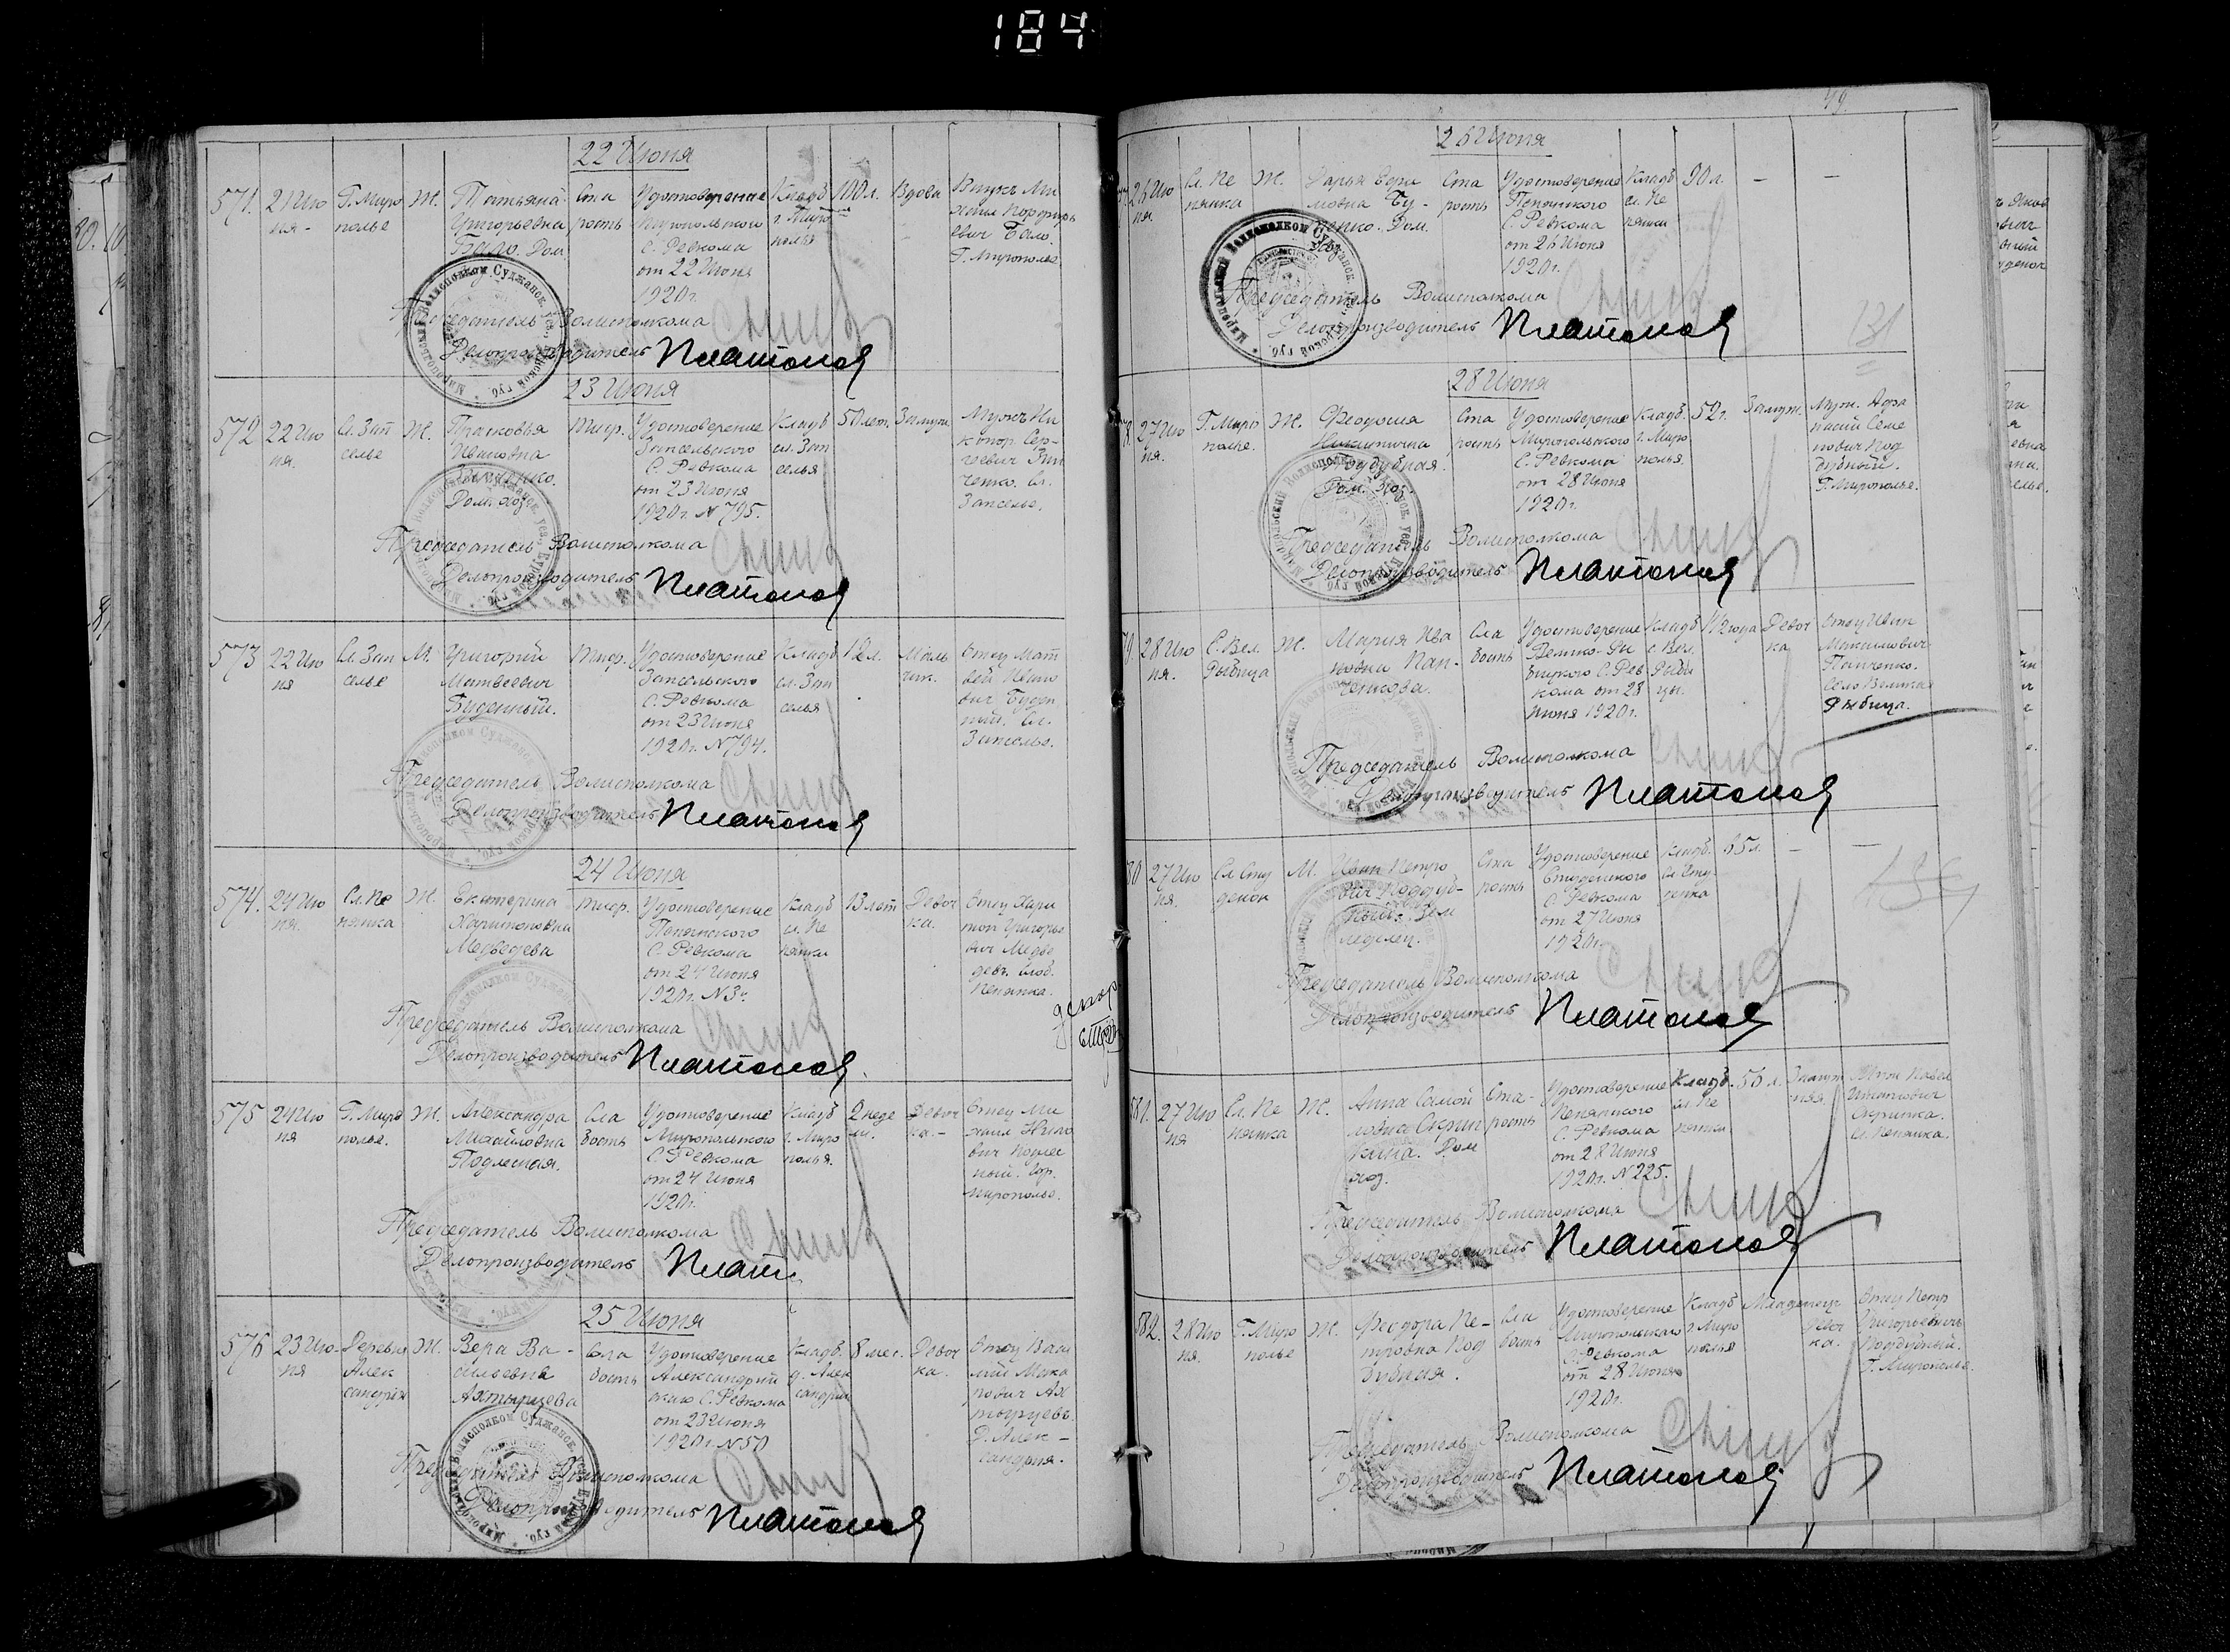 184
22 Июня
571. 21 Ию
ня-
Г. Миро
полье
Ж.
Татьяна
Григорьевна
Бало. Дом.
Ста
рость
Удостоверение
Миропольского
С. Ревкома
от 22 Июня
1920 г.
Кладб
г. Миро
полья
100 л.
Вдова
Внукъ Ми
хаил Порфирь
евич Бало.
Г. Мирополье
Председатель Волисполкома
Делопроизводитель Платонов
23 Июня
572 22 Ию
ня.
Сл. Зап
селье
Ж.
Прасковья
Ивановна
Зинченко.
Дом. хоз.
Тиф.
Удостоверение
Запсельского
С. Ревкома
от 23 Июня
1920 г. № 795.
Кладб
сл. Зап
селья
50 лет.
Замуж.
Мужъ Ни
канор Сер-
геевич Зин
ченко. Сл.
Запселье.
Председатель Волисполкома
Делопроизводитель Платонов
573 22 Ию
ня
Сл. Зап
селье
М.
Григорий
Матвеевич
Буденный.
Тиф.
Удостоверение
Запсельского
С. Ревкома
от 23 Июня
1920 г. № 794.
Кладб
сл. Зап
селья
12 л.
Маль
чик.
Отец Мат
вей Ивано
вич Буден
ный. Сл.
Запселье.
Председатель Волисполкома
Делопроизводитель Платонов
24 Июня
574. 24 Ию
ня.
Сл. Пе
нянка
Ж.
Екатерина
Харитоновна
Медведева
Тиф.
Удостоверение
Пенянского
С. Ревкома
от 24 Июня
1920 г. № 3
Кладб
сл. Пе
нянки
13 лет
Девоч
ка.
Отец Хари
тон Григорье
вич Медве
дев. Слоб.
Пенянка.
Председатель Волисполкома
Делопроизводитель Платонов.
575 24 Ию
ня
Г. Миро
полье.
Ж.
Александра
Михайловна
Подлесная.
Сла
бость
Удостоверение
Миропольского
С. Ревкома
от 24 Июня
1920 г.
Кладб
г. Миро
полья.
2 неде
ли.
Девоч
ка.-
Отец Ми
хаил Нико
вич Подлес
ный. Гор.
Мирополье.
Председатель Волисполкома
Делопроизводитель Плат
25 Июня
576 23 Ию-
ня
Деревня
Алек
сандрия
Ж.
Вера Ва-
сильевна
Ахтырцева
Сла
бость
Удостоверение
Александрий
скаго С. Ревкома
от 23 Июня
1920 г. № 50
Кладб.
д. Алек
сандрии
8 мес.
Девоч
ка.
Отец Васи
лий Мака
рович Ах
тырцевъ.
Д. Алек-
сандрия.
Председатель Волисполкома
Делопроизводитель Платонов
49.
26 Июня
26 Ию
ня
Сл. Пе
нянка
Ж.
Дарья Ефи
мовна Бу-
Дом.
Ста
рость
Удостоверение
Пенянского
С. Ревкома
от 26 Июня
1920 г.
Кладб
сл. Пе
нянки
90 л.
—
—
Председатель Волисполкома
Делопроизводитель Платонов
131
28 Июня
27 Ию
ня.
Г. Миро
полье.
Ж.
Феодосия
Никитична
Поддубная.
Дом. Хоз.
Ста
рость
Удостоверение
Миропольского
С. Ревкома
от 28 Июня
1920 г.
Кладб.
г. Миро
полья.
52 г.
Замуж.
Муж. Афа
насий Семе
нович Под
дубный.
Г. Мирополье.
Председатель Волисполкома
Делопроизводитель Платонов
28 Ию
ня.
С. Вел.
Рыбица
Ж.
Мария Ива
новна Пан-
ченкова.
Сла
бость
Удостоверение
Велико-Ры
бицкого С. Рев
кома от 28
Июня 1920 г.
Кладб
с. Вел.
Рыби
цы.
1/2 года
Девоч
ка
Отец Иван
Максимович
Панченко.
Село Великая
Рыбица.
Председатель Волисполкома
Делопроизводитель Платонов
80 27 Ию
ня.
Сл Сту
денок
М.
Иван Петро
вич Поддуб-
ный. Зем
леделец.
Ста
рость
Удостоверение
Студенского
С. Ревкома
от 27 Июня
1920 г.
Кладб.
сл Сту
денка
65 л.
—
—
Председатель Волисполкома
Делопроизводитель Платонов
581. 27 Ию
ня
Сл. Пе
нянка
Ж.
Анна Самой
ловна Скрип
кина. Дом
хоз.
Ста-
рость
Удостоверение
Пенянского
С. Ревкома
от 28 Июня
1920 г. № 225.
Кладб.
сл. Пе
нянки
56 л.
Замуж
няя.
Муж Павел
Игнатович
Скрипка.
Сл. Пенянка.
Председатель Волисполкома
Делопроизводитель Платонов
582. 28 Ию
ня.
Г. Миро
полье
Ж.
Феодора Пе-
тровна Под
дубная.
Сла
бость
Удостоверение
Миропольскаго
С. Ревкома
от 28 Июня
1920 г.
Кладб
г. Миро
полья
Младенец
Девоч
ка.
Отец Петр
Григорьевичъ
Поддубный.
Г. Мирополье.
Председатель Волисполкома
Делопроизводитель Платонов